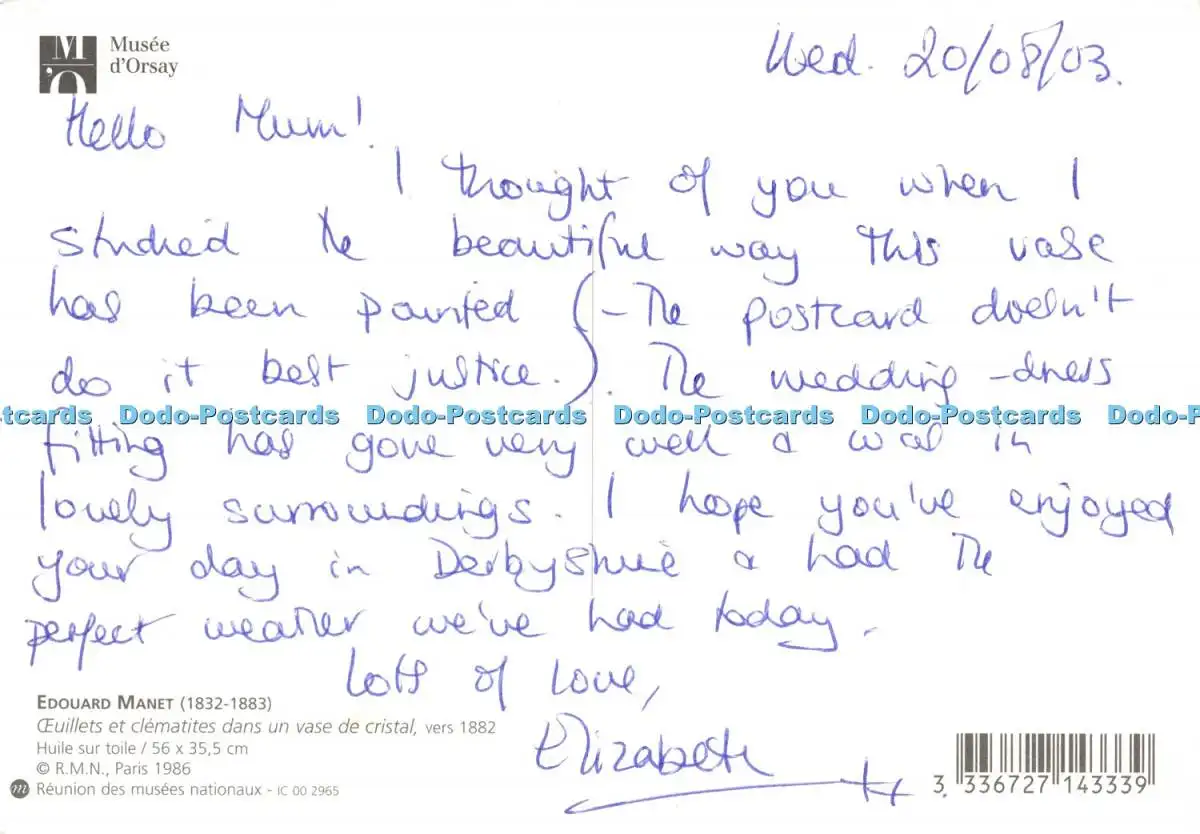 Musée
d'Orsay
Wed. 20/08/03.
Hello Mum!
I thought of you when I
studied the beautiful way this vase
has been painted (-The postcard doesn't
do it best justice.). The wedding-dress
tcards Dodo-Postcards Dodo-Postcards Dodo-Postcards Dodo-Postcards Dodo-P
fitting has gone very well & was in
lovely surroundings. I hope you've enjoyed
your day in Derbyshire & had the
perfect weather we've had today.
Lots of love,
Elizabeth
EDOUARD MANET (1832-1883)
Œuillets et clématites dans un vase de cristal, vers 1882
Huile sur toile / 56 x 35,5 cm
© R.M.N., Paris 1986
m Réunion des musées nationaux - IC 00 2965
3 336727 143339